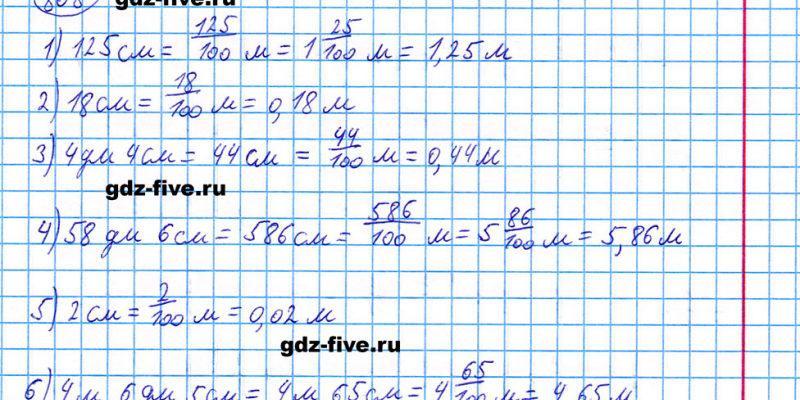 gdz-five.ru
1) 125 см = 125/100 м = 1 25/100 м = 1,25 м
2) 18 см = 18/100 м = 0,18 м
3) 4 дм 4 см = 44 см = 44/100 м = 0,44 м
gdz-five.ru
4) 58 дм 6 см = 586 см = 586/100 м = 5 86/100 м = 5,86 м
5) 2 см = 2/100 м = 0,02 м
gdz-five.ru
6) 4 м 6 дм 5 см = 4 м 65 см = 4 65/100 м = 4,65 м